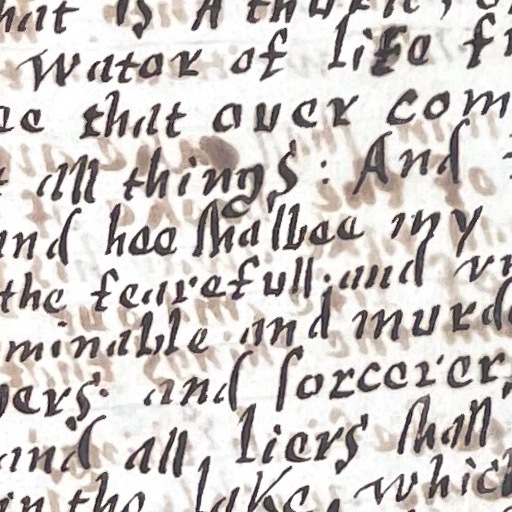 hat is A thurst, o
water of life fr
ee that ouer com
t all things: And
and hee shalbee my
the fearefull and vn
minable and murde
gers and sorcerers
and all liers shall
in the lake, which